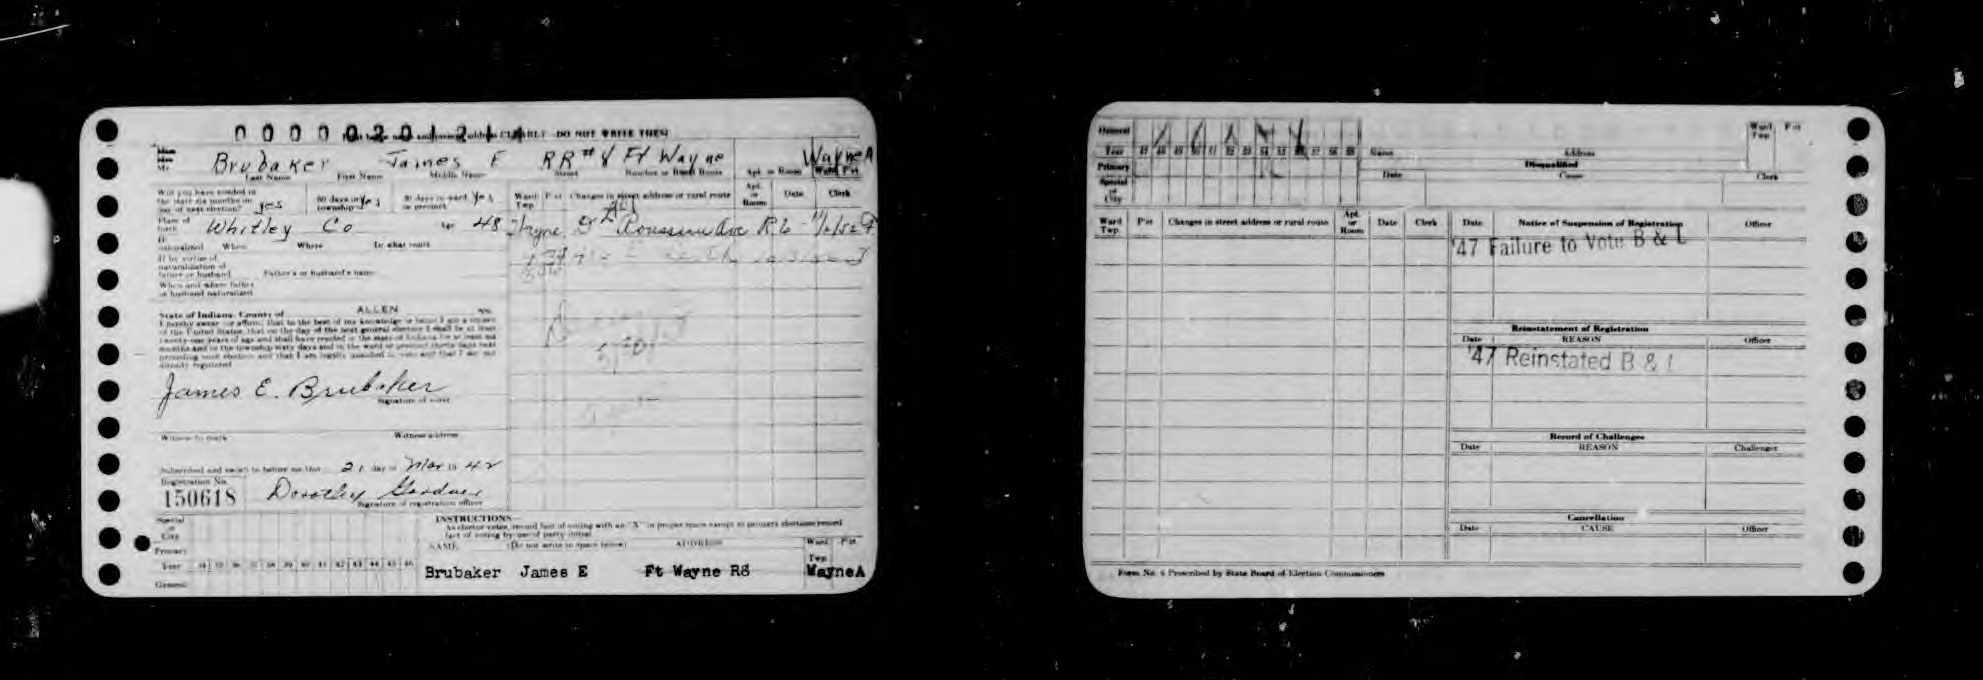 0000020121
DO NOT WRITE THESE
Brubaker James E RR# 8 Ft Wayne Wayne A
Last Name First Name Middle Name Street Number or Rural Route Apt. or Room Ward Pct
Will you have resided in the state six months on day of next election? yes 60 days in township? Yes 30 days in ward or precinct Yes
Ward Twp. Pct Changes in street address or rural route Apt. or Room Date Clerk
Place of birth Whitley Co Age 48 Wayne Rousseau Ave R 6
If naturalized When Where In what court
If by virtue of naturalization of father or husband Father's or husband's name
When and where father or husband naturalized
State of Indiana, County of ALLEN ss:
I hereby swear (or affirm) that to the best of my knowledge or belief I am a citizen
of the United States, that on the day of the next general election I shall be at least
twenty-one years of age and shall have resided in the state of Indiana for at least six
months and in the township sixty days and in the ward or precinct thirty days next
preceding such election and that I am legally qualified to vote and that I am not
already registered
James E. Brubaker
Signature of voter
Witness to mark Witness address
Subscribed and sworn to before me this 21 day of Mar 19 42
Registration No.
150618 Dorothy Gardner
Signature of registration officer
Special or City
Primary
Year 34 35 36 37 38 39 40 41 42 43 44 45 46
General
INSTRUCTIONS—
As elector votes, record fact of voting with an "X" in proper space except in primary elections record
fact of voting by use of party initial
NAME (Do not write in space below) ADDRESS Ward Pct
Twp
Brubaker James E Ft Wayne R8 WayneA
General
Year 47 48 49 50 51 52 53 54 55 56 57 58 59
Primary
Special or City
Name Address Ward Twp Pct
Disqualified
Date Cause Clerk
Ward Twp. Pct Changes in street address or rural route Apt. or Room Date Clerk
Date Notice of Suspension of Registration Officer
'47 Failure to Vote B & L
Reinstatement of Registration
Date REASON Officer
'47 Reinstated B & L
Record of Challenges
Date REASON Challenger
Cancellation
Date CAUSE Officer
Form No. 6 Prescribed by State Board of Election Commissioners